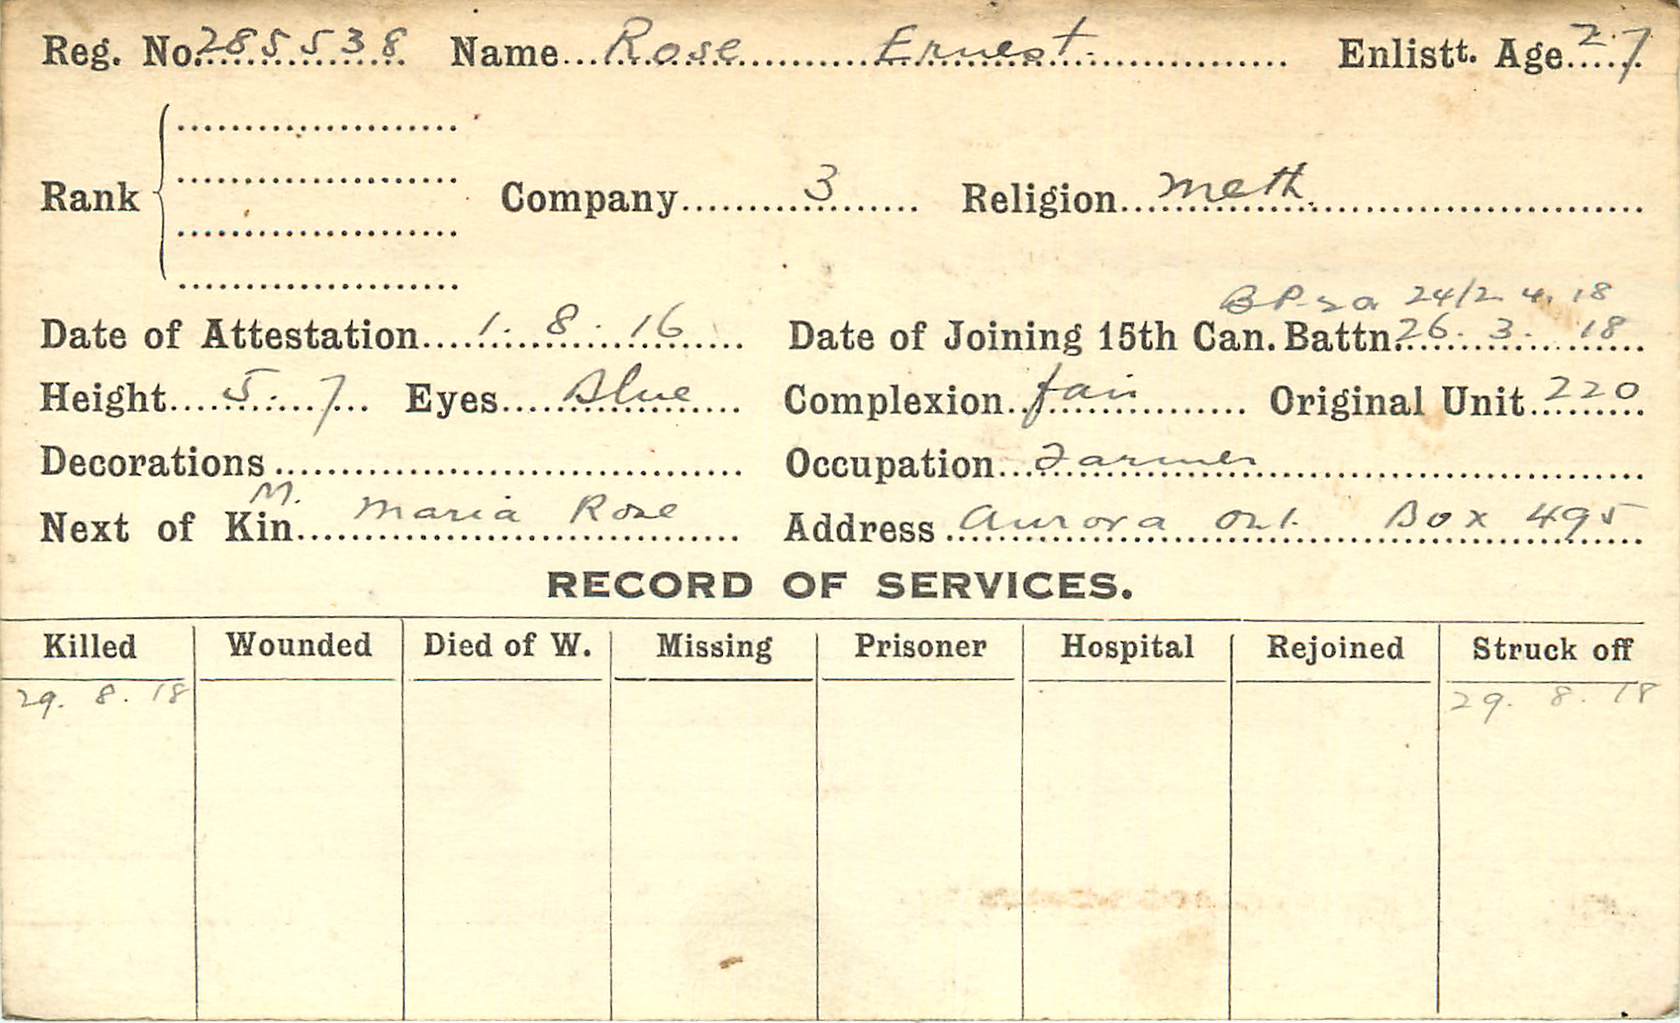 Reg. No. 285538 Name Rose Ernest. Enlistt. Age 27
Rank Company 3 Religion Meth.
24/2.4.18
Date of Attestation 1.8.16 Date of Joining 15th Can. Battn. 26.3.18
Height 5.7 Eyes Blue Complexion fair Original Unit 220
Decorations Occupation Farmer
M.
Next of Kin Maria Rose Address Aurora Ont. Box 495
RECORD OF SERVICES.
Killed Wounded Died of W. Missing Prisoner Hospital Rejoined Struck off
29.8.18 29.8.18